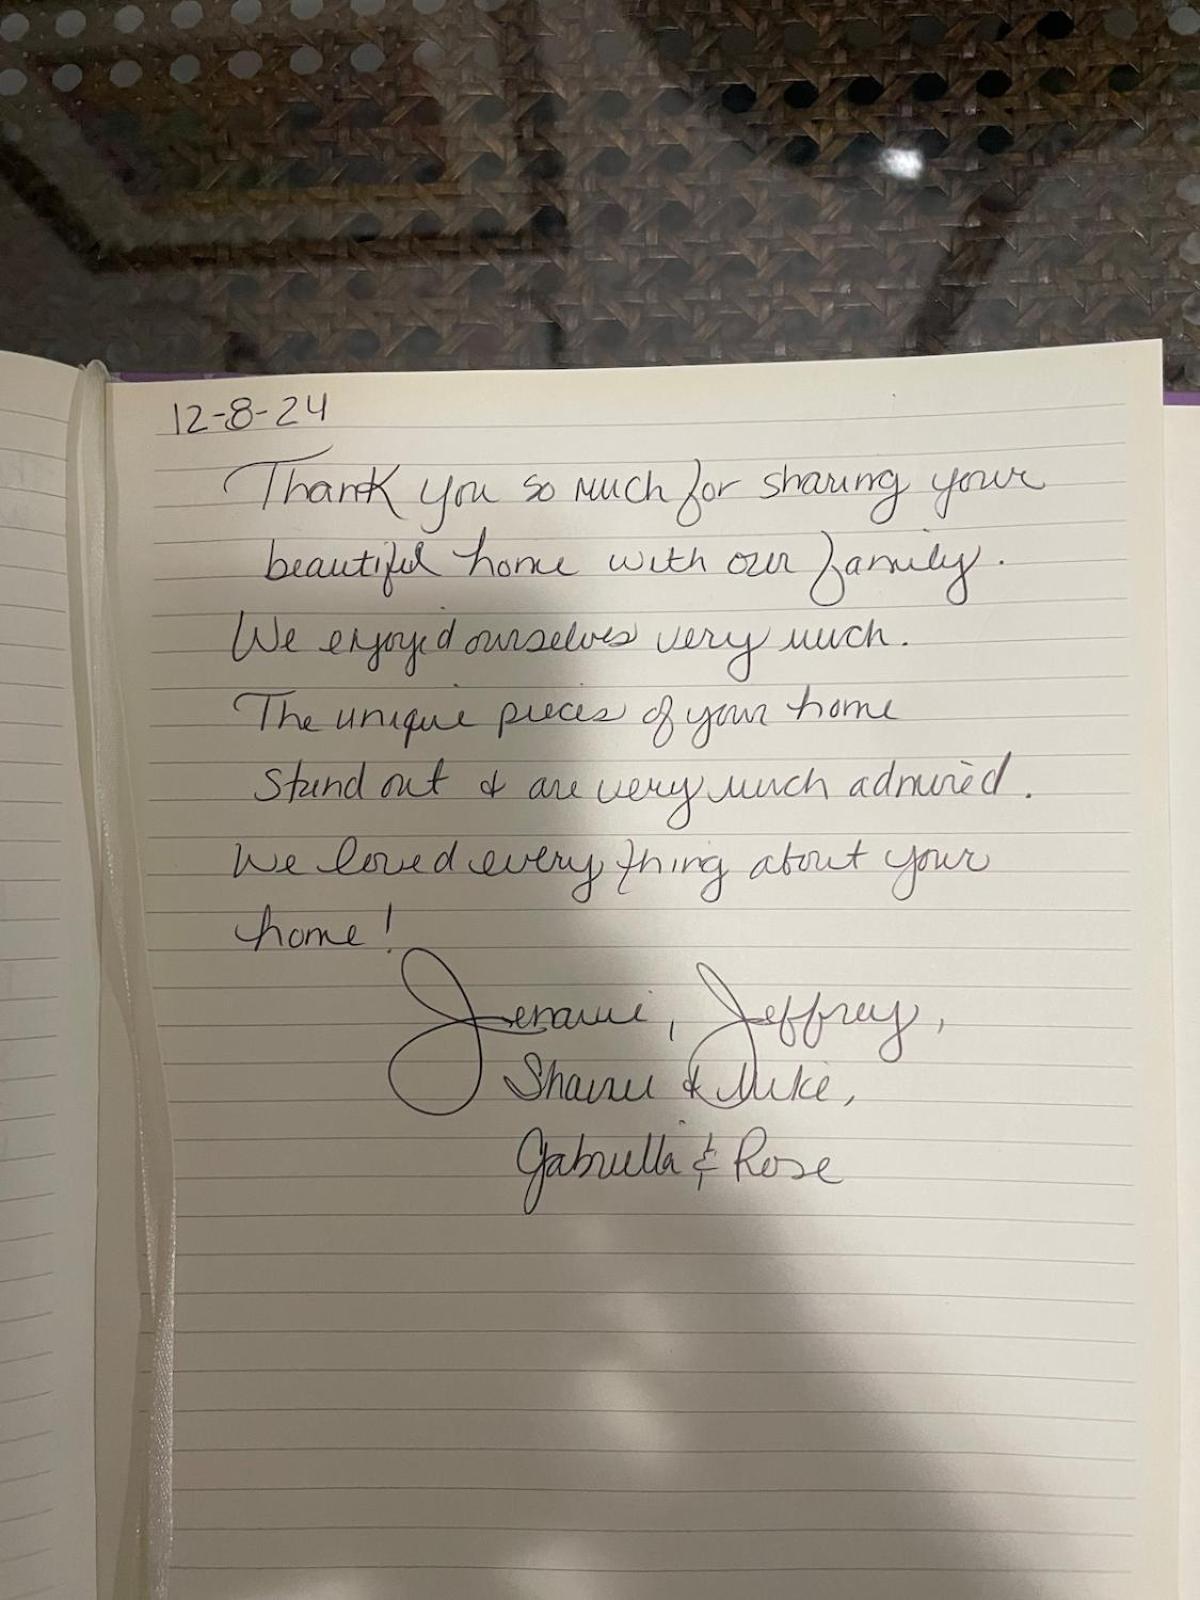 12-8-24
Thank you so much for sharing your
beautiful home with our family.
We enjoyed ourselves very much.
The unique pieces of your home
stand out & are very much admired.
We loved every thing about your
home!
, Jeffrey,
& Mike,
Gabriella & Rose